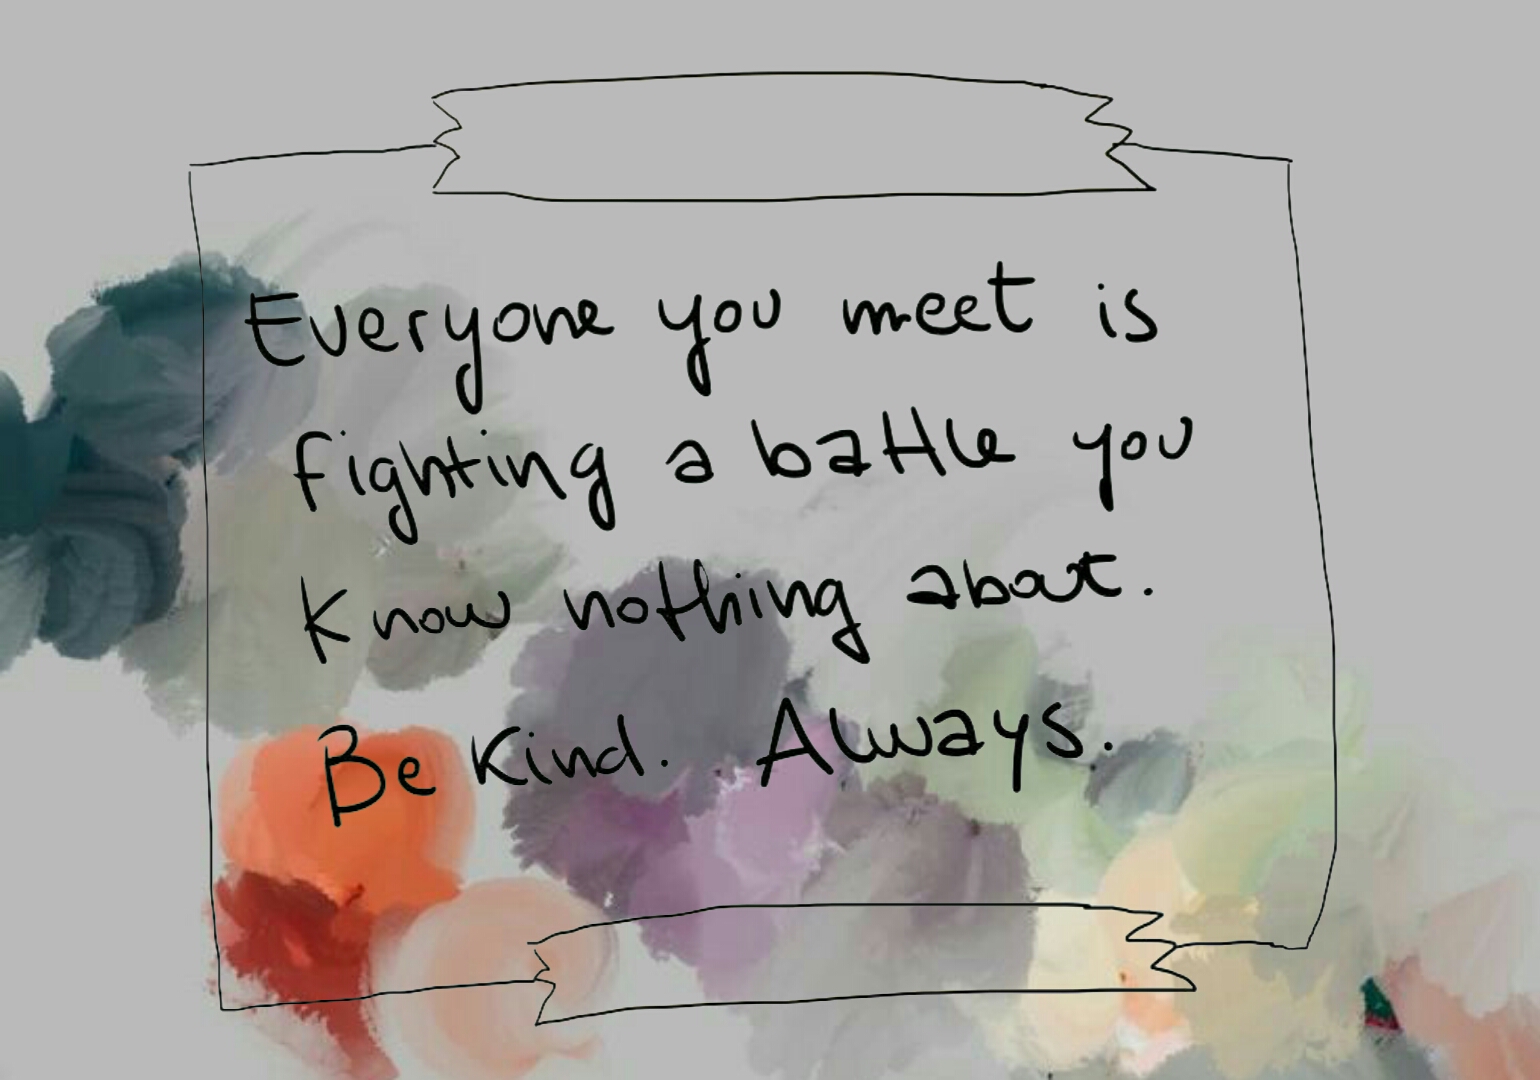 Everyone you meet is
fighting a battle you
know nothing about.
Be kind. Always.